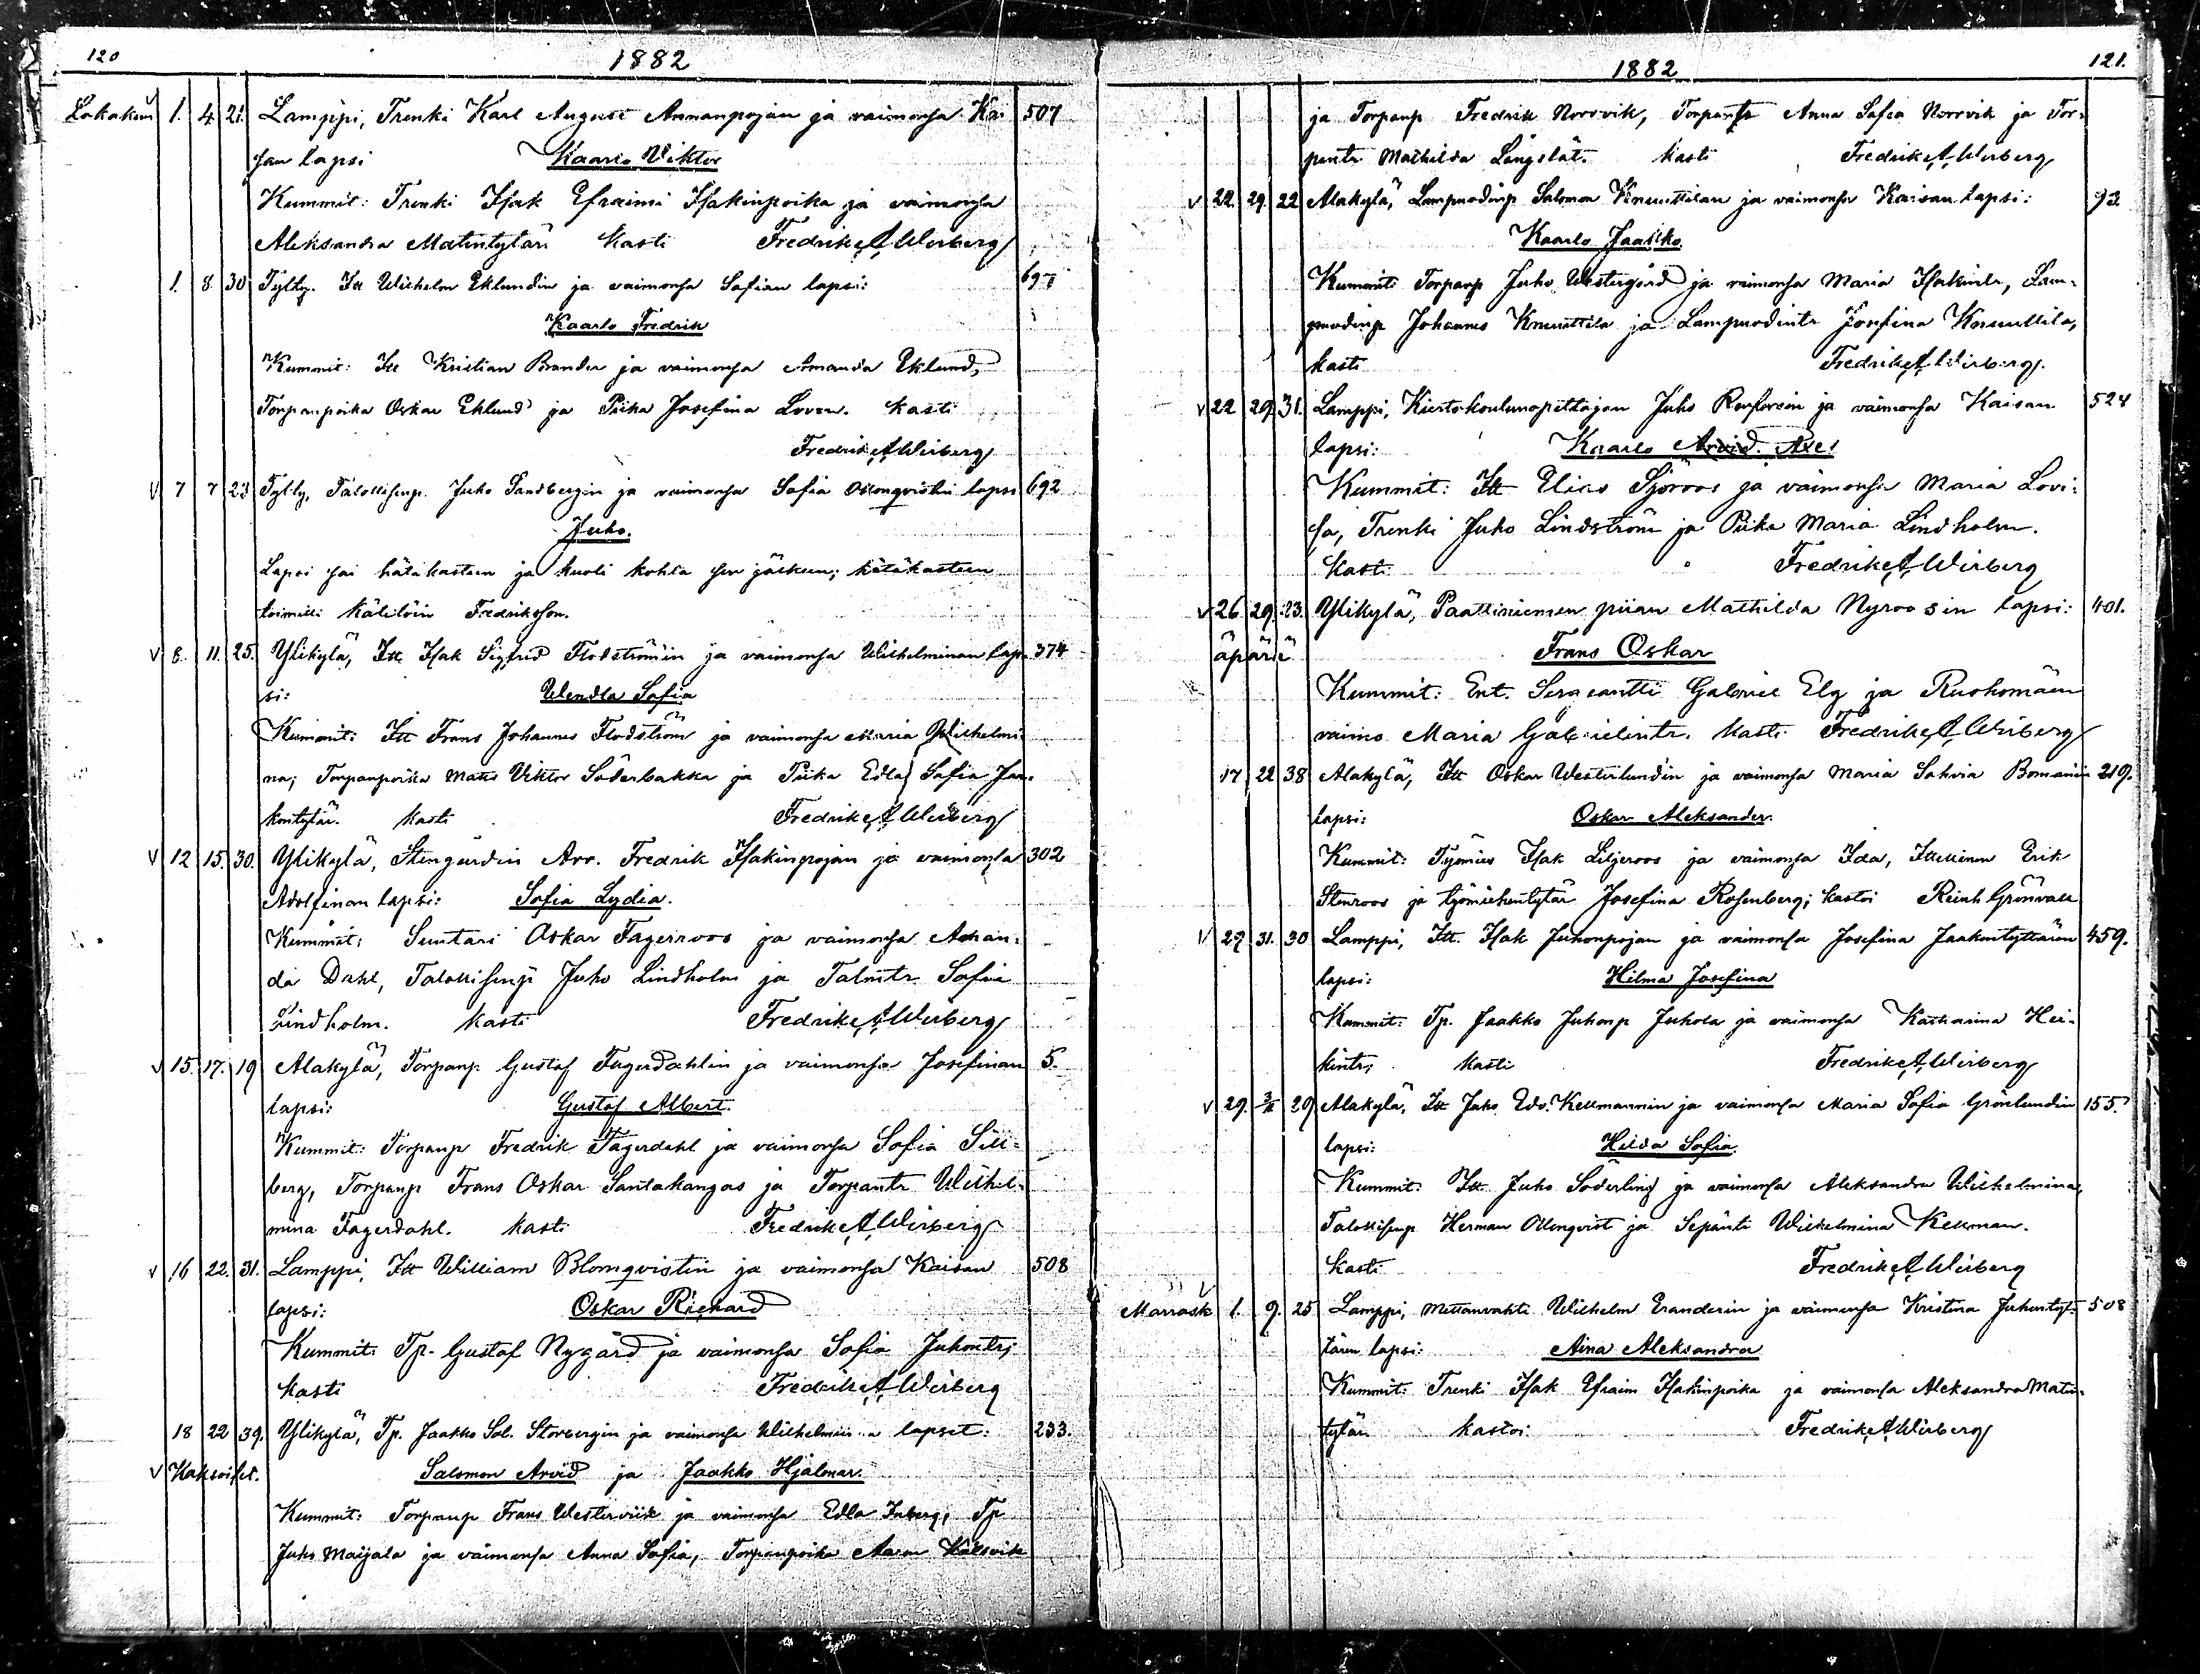 120
1882
Lokakuu 1. 4. 21. Lamppi, Trenki Karl August Annanpojan ja vaimonsa Kai- 507
san lapsi Kaarlo Viktor
Kummit: Trenki Isak Efraimi Isakinpoika ja vaimonsa
Aleksandra Matintytär. Kasti Fredrik A Wirberg
1. 8 30 Tylty. Itt Wilhelm Eklundin ja vaimonsa Sofian lapsi:
Kaarlo Fredrik
Kummit: Itt Kristian Brander ja vaimonsa Amanda Eklund,
Torpanpoika Oskar Eklund ja Piika Josefina Loven. Kasti
Fredrik A Wirberg
V 7 7 23 Tylty, Talollisenp. Juho Sandbergin ja vaimonsa Sofia lapsi 692
Juho.
Lapsi sai hätäkasteen ja kuoli kohta sen jälkeen; hätäkasteen
toimitti Kätilöin Fredriksson.
V 8. 11. 25. Ylikylä, Itt Isak Sigfrid Flodströmin ja vaimonsa Wilhelminan lap- 374
si: Wendla Sofia
Kummit: Itt Frans Johannes Flodström ja vaimonsa Maria Wilhelmi-
na; Torpanpoika Matts Viktor Söderbakka ja Piika Edla Sofia Jaa-
kontytär. Kasti Fredrik A Wirberg
V 12 15. 30. Ylikylä, Stengårdin Arr. Fredrik Isakinpojan ja vaimonsa 302
Adolfinan lapsi: Sofia Lydia.
Kummit: Suutari Oskar Fagerroos ja vaimonsa Aman-
da Dahl, Talollisenp Juho Lindholm ja Talintr Sofia
Lindholm. Kasti Fredrik A Wirberg
V 15. 17. 19 Alakylä, Torpanp. Gustaf Fagerdahlin ja vaimonsa Josefinan 5.
lapsi: Gustaf Albert.
Kummit: Torpanp Fredrik Fagerdahl ja vaimonsa Sofia Sill-
berg, Torpanp Frans Oskar Santakangas ja Torpantr Wilhel-
mina Fagerdahl. Kasti Fredrik A Wirberg
V 16 22. 31. Lamppi, Itt William Blomqvistin ja vaimonsa Kaisan 508
lapsi: Oskar Richard
Kummit: Tp. Gustaf Nygård ja vaimonsa Sofia Juhontr;
Kasti Fredrik A Wirberg
18 22 39. Ylikylä, Tp. Jaakko Sal. Storbergin ja vaimonsa lapset: 233.
V Kaksoiset. Salomon Arvid ja Jaakko Hjalmar.
Kummit: Torpanp Frans Westerviik ja vaimonsa Edla Inberg, Tp
Juho Maijala ja vaimonsa Anna Sofia, Torpanpoika Aaron
121.
1882
ja Torpanp Fredrik Norrvik, Torpantr Anna Sofia Norrvik ja Tor-
pantr Mathilda Långslät. Kasti Fredrik A Wirberg
V 22. 29. 22 Alakylä, Lampuodinp Salomon Knuuttilan ja vaimonsa Kaisan lapsi: 92
Kaarlo Jaakko.
Kummit: Torpanp Juho Westergård ja vaimonsa Maria Isakintr, Lam-
puodinp Johannes Knuuttila ja Lampuodintr Josefina Knuuttila,
kasti Fredrik A Wirberg.
V 22 29. 31. Lamppi, Kiertokoulunopettajan Juho Renforsin ja vaimonsa Kaisan 524
lapsi: Kaarlo Arvid. Axel
Kummit: Itt Elias Sjöroos ja vaimonsa Maria Lovi-
sa, Trenki Juho Lindström ja Piika Maria Lindholm.
Kasti Fredrik A Wirberg
V 26 29. 23. Ylikylä, Paattiniemen piian Mathilda Nyroosin lapsi: 401.
äpärä Frans Oskar
Kummit: Ent. Sersantti Gabriel Elg ja Ruohomäen
vaimo Maria Gabrielintr. Kasti Fredrik A Wirberg
17 22 38 Alakylä, Itt Oskar Westerlundin ja vaimonsa Maria Bomanin 219.
lapsi: Oskar Aleksander.
Kummit: Työmies Isak Liljeroos ja vaimonsa Ida, Itsellinen Erik
Stenroos ja työmiehentytär Josefina Rosenberg; kastoi Reinh Grönvall
V 27 31. 30 Lamppi, Itt. Isak Juhonpojan ja vaimonsa Josefina Jaakontyttären 459.
lapsi: Hilma Josefina
Kummit: Tp. Jaakko Juhonp Juhola ja vaimonsa Katharina Hei-
kintr; Kasti Fredrik A Wirberg
V 29. 3/11 29 Alakylä, Itt Juho Edv. Kellmannin ja vaimonsa Maria Sofia Grönlundin 155.
lapsi: Hilda Sofia.
Kummit: Itt Juho Söderling ja vaimonsa Aleksandra Wilhelmina,
Talollisenp Herman Ollonqvist ja Sepäntr Wilhelmina Kellman.
Kasti Fredrik A Wirberg
Marrask 1. 9. 25 Lamppi, Mettänvahti Wilhelm Granderin ja vaimonsa Kristina Juhontyt- 508
tären lapsi: Aina Aleksandra
Kummit: Trenki Isak Efraim Isakinpoika ja vaimonsa Aleksandra Matin-
tytär. kastoi: Fredrik A Wirberg